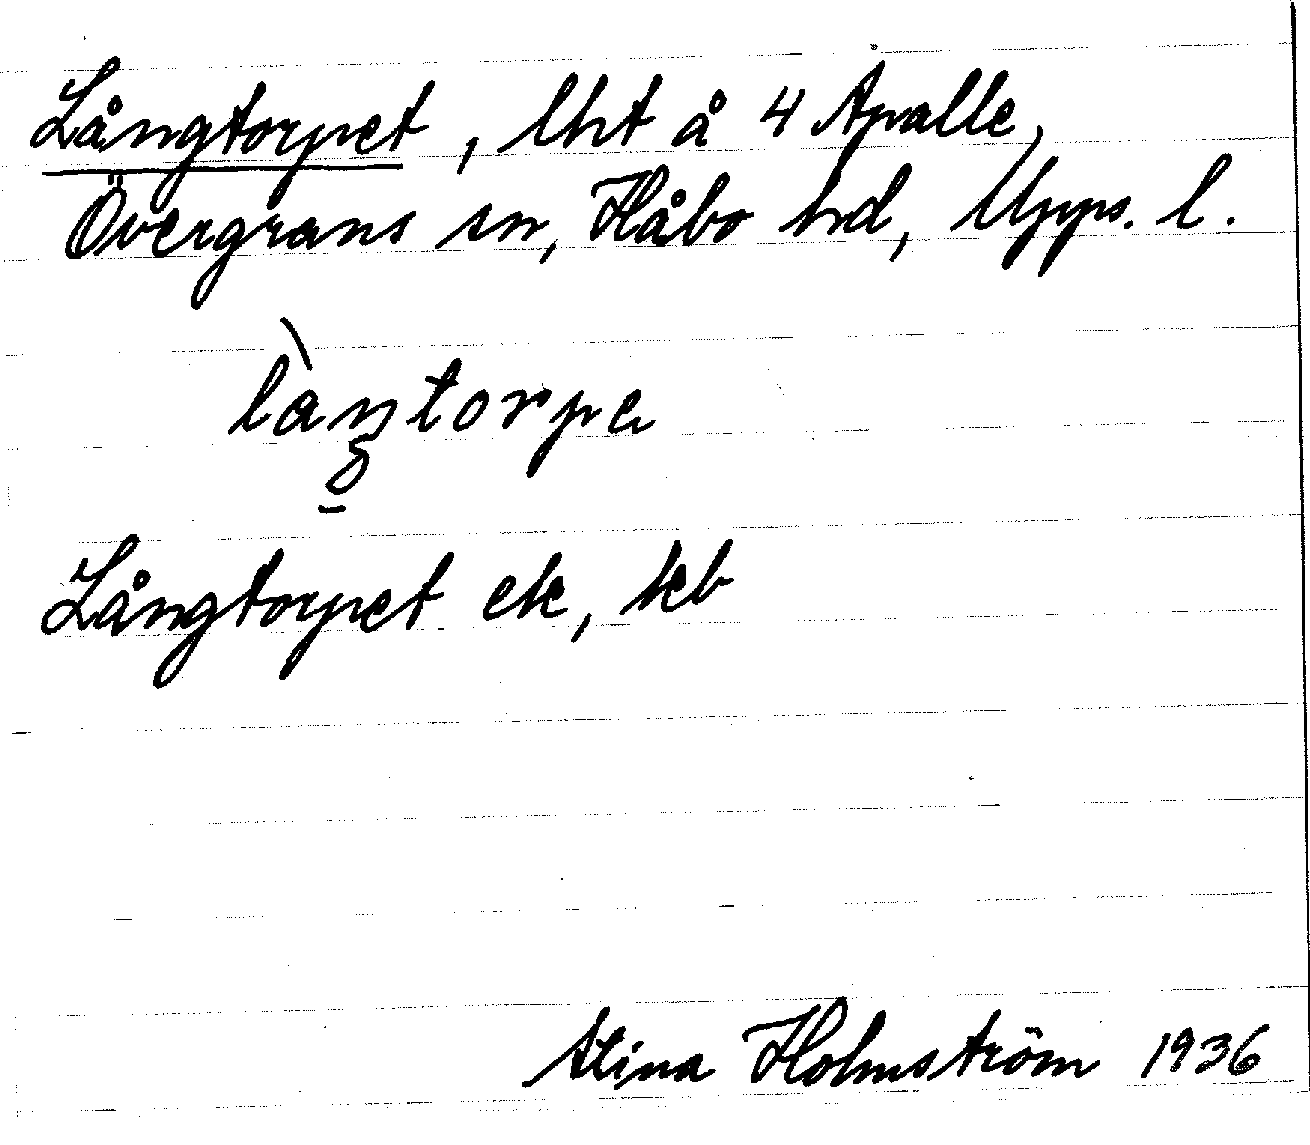 Långtorpet, lht å 4 Apalle,
Övergrans sn, Håbo hd, Upps. l.
Långtorpet ek, kb
Stina Holmström 1936